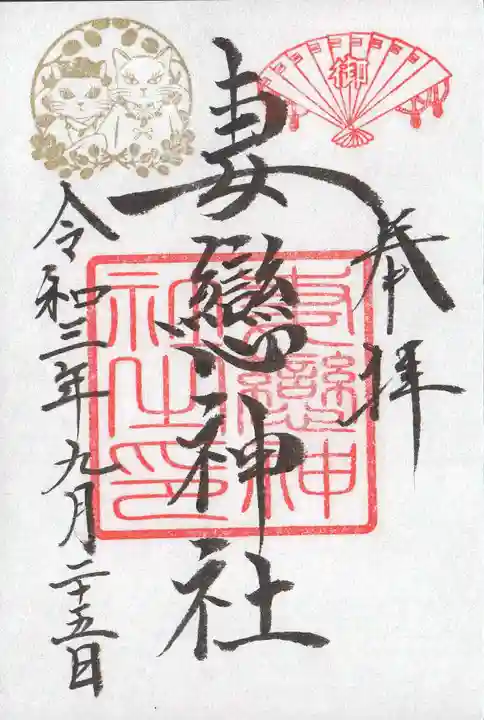 奉拝
妻戀神社
令和三年九月二十五日
御
妻戀神
社之印